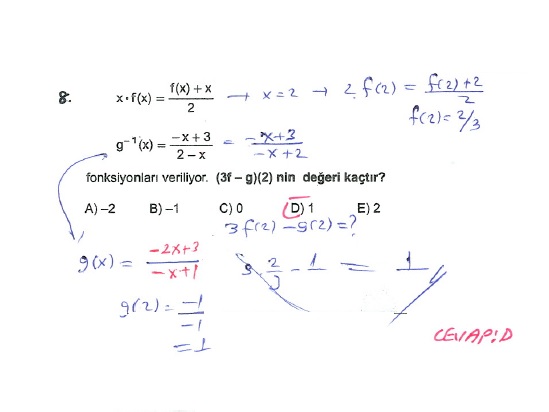 8. x·f(x) = (f(x) + x)/2 → x = 2 → 2·f(2) = (f(2)+2)/2
f(2) = 2/3
g⁻¹(x) = (−x + 3)/(2 − x) = (−x+3)/(−x+2)
fonksiyonları veriliyor. (3f – g)(2) nin değeri kaçtır?
A) –2 B) –1 C) 0 D) 1 E) 2
3f(2) – g(2) = ?
g(x) = (−2x+3)/(−x+1)
3·2/3 − 1 = 1
g(2) = −1/−1
= 1
CEVAP:D